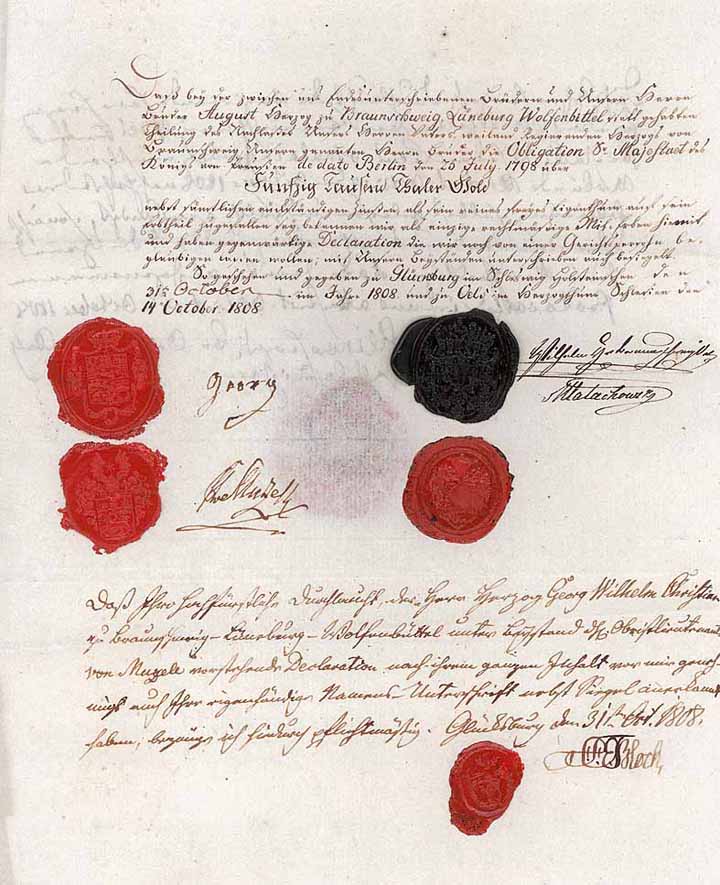 Daß bey der zwischen uns Endesunterschriebenen Brüdern und Unsern Herrn
Bruder August Herzog zu Braunschweig, Lüneburg Wolfenbüttel statt gehabten
Theilung des Nachlasses Unsers Herren Vaters weiland Regierenden Herzogs von
Braunschweig Unsern genanten Herrn Bruder die Obligation Sr. Majestaet des
Königs von Preussen de dato Berlin den 26 July 1798 über
Funfzig Tausend Thaler Gold
nebst sämtlichen rückständigen Zinsen als sein reines freyes Eigenthum auf sein
Erbtheil zugefallen sey bekennen wir als einzige rechtmässige Mit-Erben hiemit
und haben gegenwärtige Declaration die wir noch von einer Gerichtsperson be-
glaubigen lassen wollen; mit Unsern Beyständen unterschrieben und besiegelt.
So geschehen und gegeben zu Glücksburg im Schleswig Holsteinschen den
31st October im Jahr 1808 und zu Oels im Herzogthum Schlesien den
14 October 1808
Georg
Wilhelm
vMuzell
Daß Ihro Hochfürstliche Durchlaucht, der Herr Herzog Georg Wilhelm Christian
zu Braunschweig-Lüneburg-Wolfenbüttel unter Beystand des Obristlieutenant
von Muzell vorstehende Declaration nach ihrem ganzen Inhalt vor mir geneh-
migt auch Ihre eigenhändige Namens-Unterschrift nebst Siegel anerkannt
haben; bezeuge ich hiedurch pflichtmässig. Glücksburg den 31st Oct. 1808.
Bloch